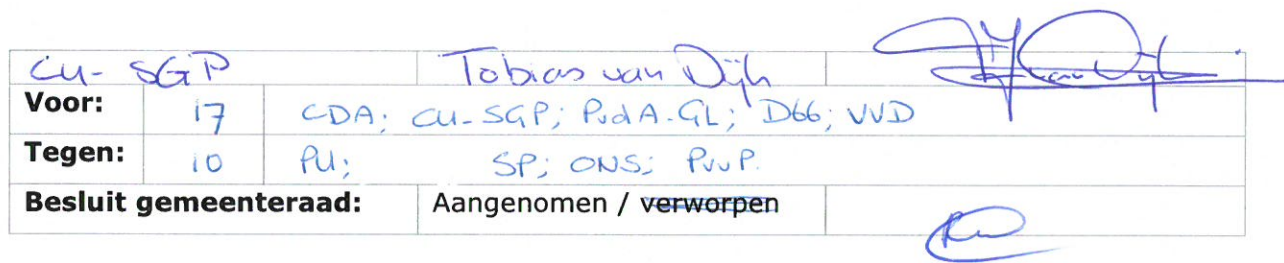 CU-SGP Tobias van Dijk
Voor: 17 CDA; CU-SGP; PvdA-GL; D66; VVD
Tegen: 10 PU; SP; ONS; PvvP.
Besluit gemeenteraad: Aangenomen / verworpen